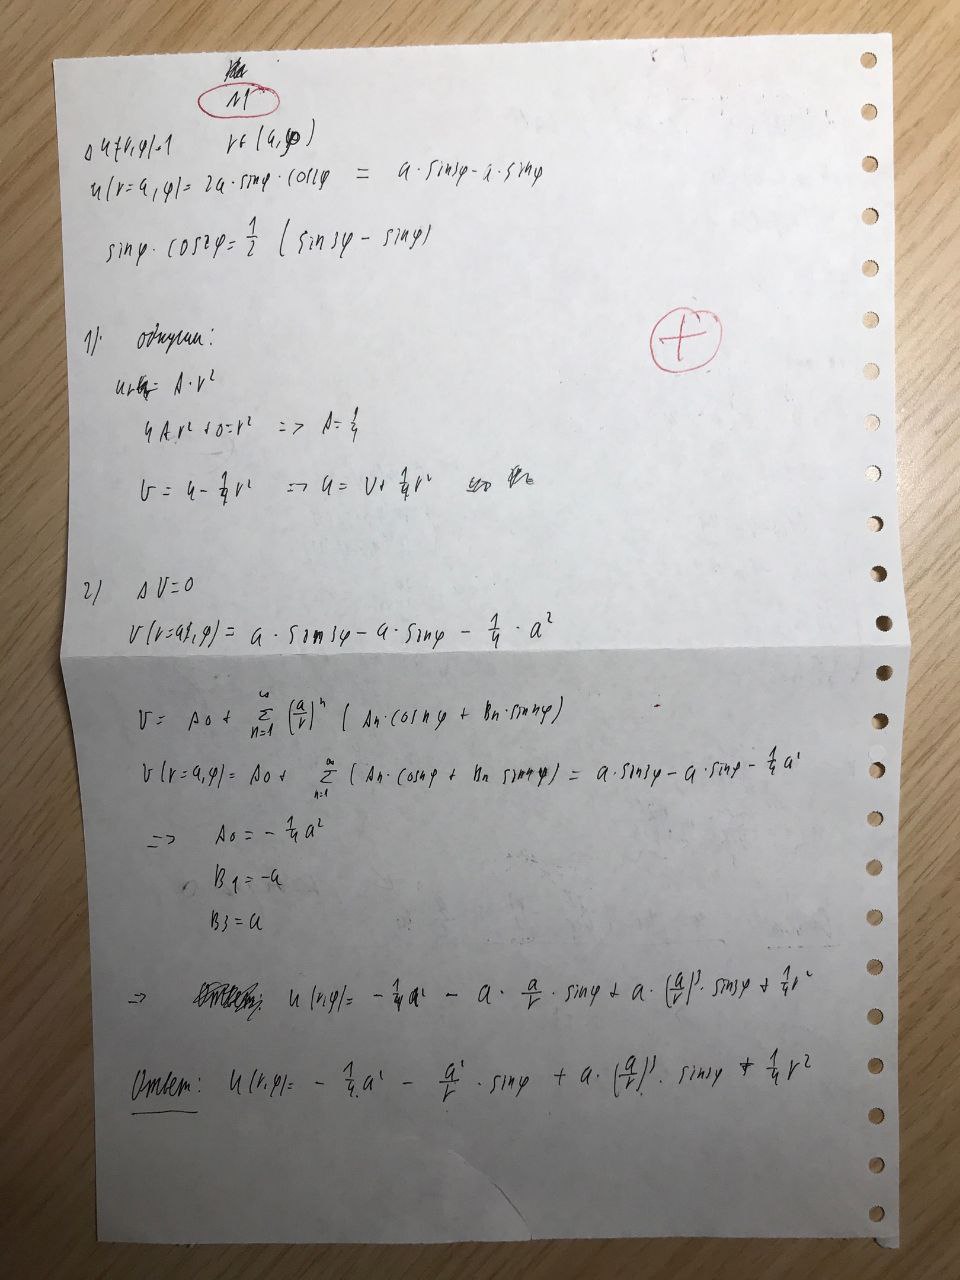 N1
Δu(r,φ)=1 r∈(a,∞)
u(r=a,φ)= 2a·sinφ·cos2φ = a·sin3φ-a·sinφ
sinφ·cos2φ= 1/2 (sin3φ - sinφ)
1).
= A·r²
4Ar²+0=r² => A=1/4
v= u-1/4r² => u= v+1/4r²
2) ΔV=0
v(r=a,φ)= a·sin3φ-a·sinφ - 1/4·a²
v= A0+ ∞Σn=1 (a/r)ⁿ (An·cosnφ + Bn·sinnφ)
v(r=a,φ)= A0+ ∞Σn=1 (An·cosnφ + Bn sinnφ) = a·sin3φ-a·sinφ-1/4a²
=> A0=-1/4a²
B1=-a
B3=a
=> u(r,φ)= -1/4a² - a·a/r·sinφ+a·(a/r)³·sin3φ+1/4r²
Ответ: u(r,φ)= -1/4a² - a²/r·sinφ +a·(a/r)³·sin3φ + 1/4r²
+